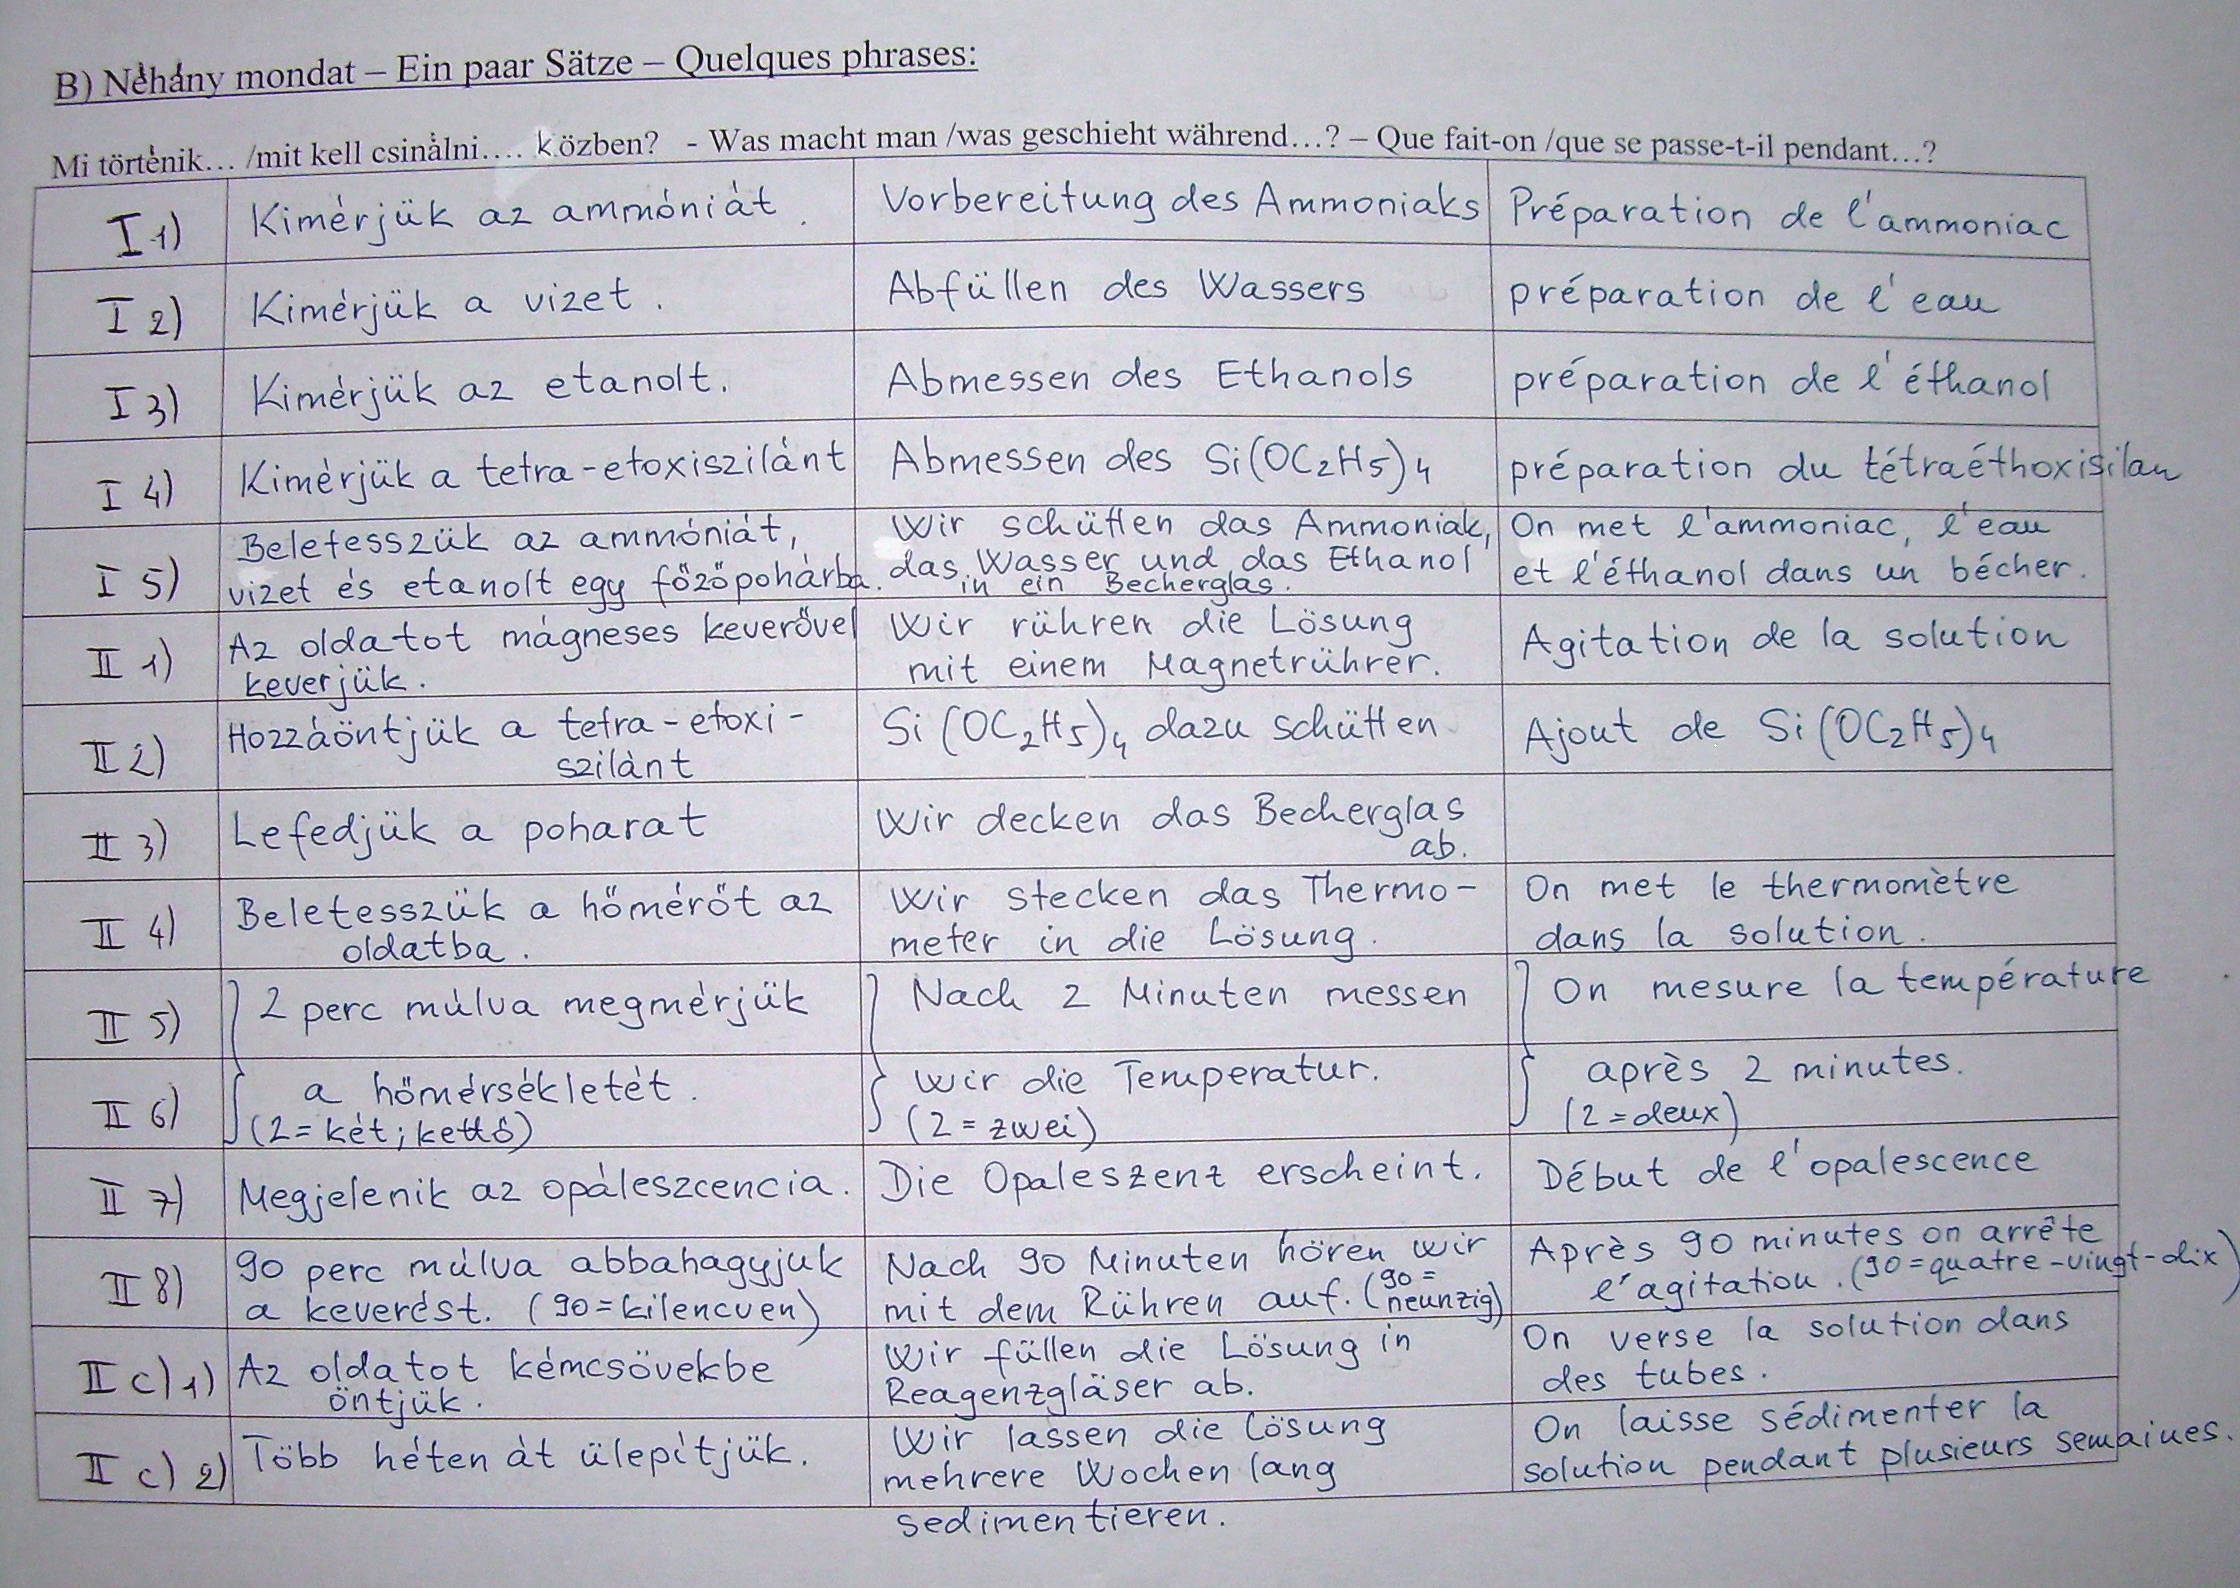 B) Néhány mondat – Ein paar Sätze – Quelques phrases:
Mi történik… /mit kell csinálni…. közben? - Was macht man /was geschieht während…? – Que fait-on /que se passe-t-il pendant…?
I 1) Kimérjük az ammóniát. Vorbereitung des Ammoniaks Préparation de l'ammoniac
I 2) Kimérjük a vizet. Abfüllen des Wassers préparation de l'eau
I 3) Kimérjük az etanolt. Abmessen des Ethanols préparation de l'éthanol
I 4) Kimérjük a tetra-etoxiszilánt Abmessen des Si(OC2H5)4 préparation du tétraéthoxisilan
I 5) Beletesszük az ammóniát,
vizet és etanolt egy főzőpohárba.
Wir schütten das Ammoniak,
das Wasser und das Ethanol
in ein Becherglas.
On met l'ammoniac, l'eau
et l'éthanol dans un bécher.
II 1) Az oldatot mágneses keverővel
keverjük.
Wir rühren die Lösung
mit einem Magnetrührer.
Agitation de la solution
II 2) Hozzáöntjük a tetra-etoxi-
szilánt
Si(OC2H5)4 dazu schütten
Ajout de Si(OC2H5)4
II 3) Lefedjük a poharat
Wir decken das Becherglas
ab.
II 4) Beletesszük a hőmérőt az
oldatba.
Wir stecken das Thermo-
meter in die Lösung.
On met le thermomètre
dans la solution.
II 5) 2 perc múlva megmérjük Nach 2 Minuten messen On mesure la température
II 6) a hőmérsékletét.
(2=két; kettő)
wir die Temperatur.
(2=zwei)
après 2 minutes.
(2=deux)
II 7) Megjelenik az opáleszcencia. Die Opaleszenz erscheint. Début de l'opalescence
II 8) 90 perc múlva abbahagyjuk
a keverést. (90=kilencven)
Nach 90 Minuten hören wir
mit dem Rühren auf. (90=
neunzig)
Après 90 minutes on arrête
l'agitation. (90=quatre-vingt-dix)
II c) 1) Az oldatot kémcsövekbe
öntjük.
Wir füllen die Lösung in
Reagenzgläser ab.
On verse la solution dans
des tubes.
II c) 2) Több héten át ülepítjük.
Wir lassen die Lösung
mehrere Wochen lang
sedimentieren.
On laisse sédimenter la
solution pendant plusieurs semaines.